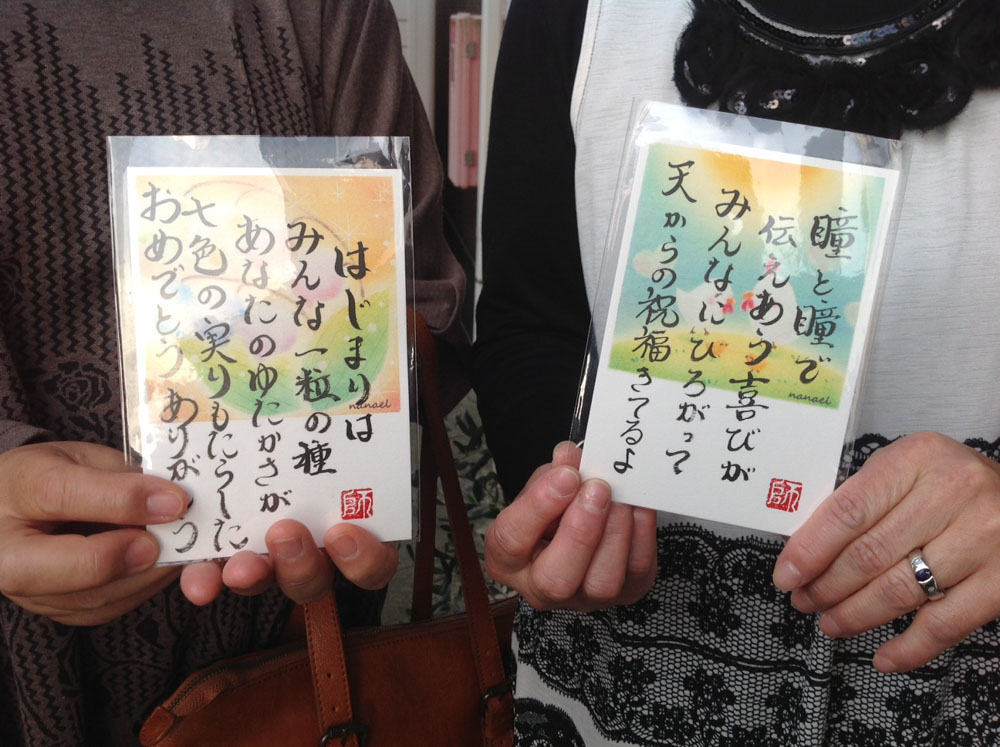 はじまりは
みんな一粒の種
あなたのゆたかさが
七色の実りもたらした
おめでとう ありがとう
nanael
師
瞳と瞳で
伝えあう喜びが
みんなにひろがって
天からの祝福きてるよ
nanael
師